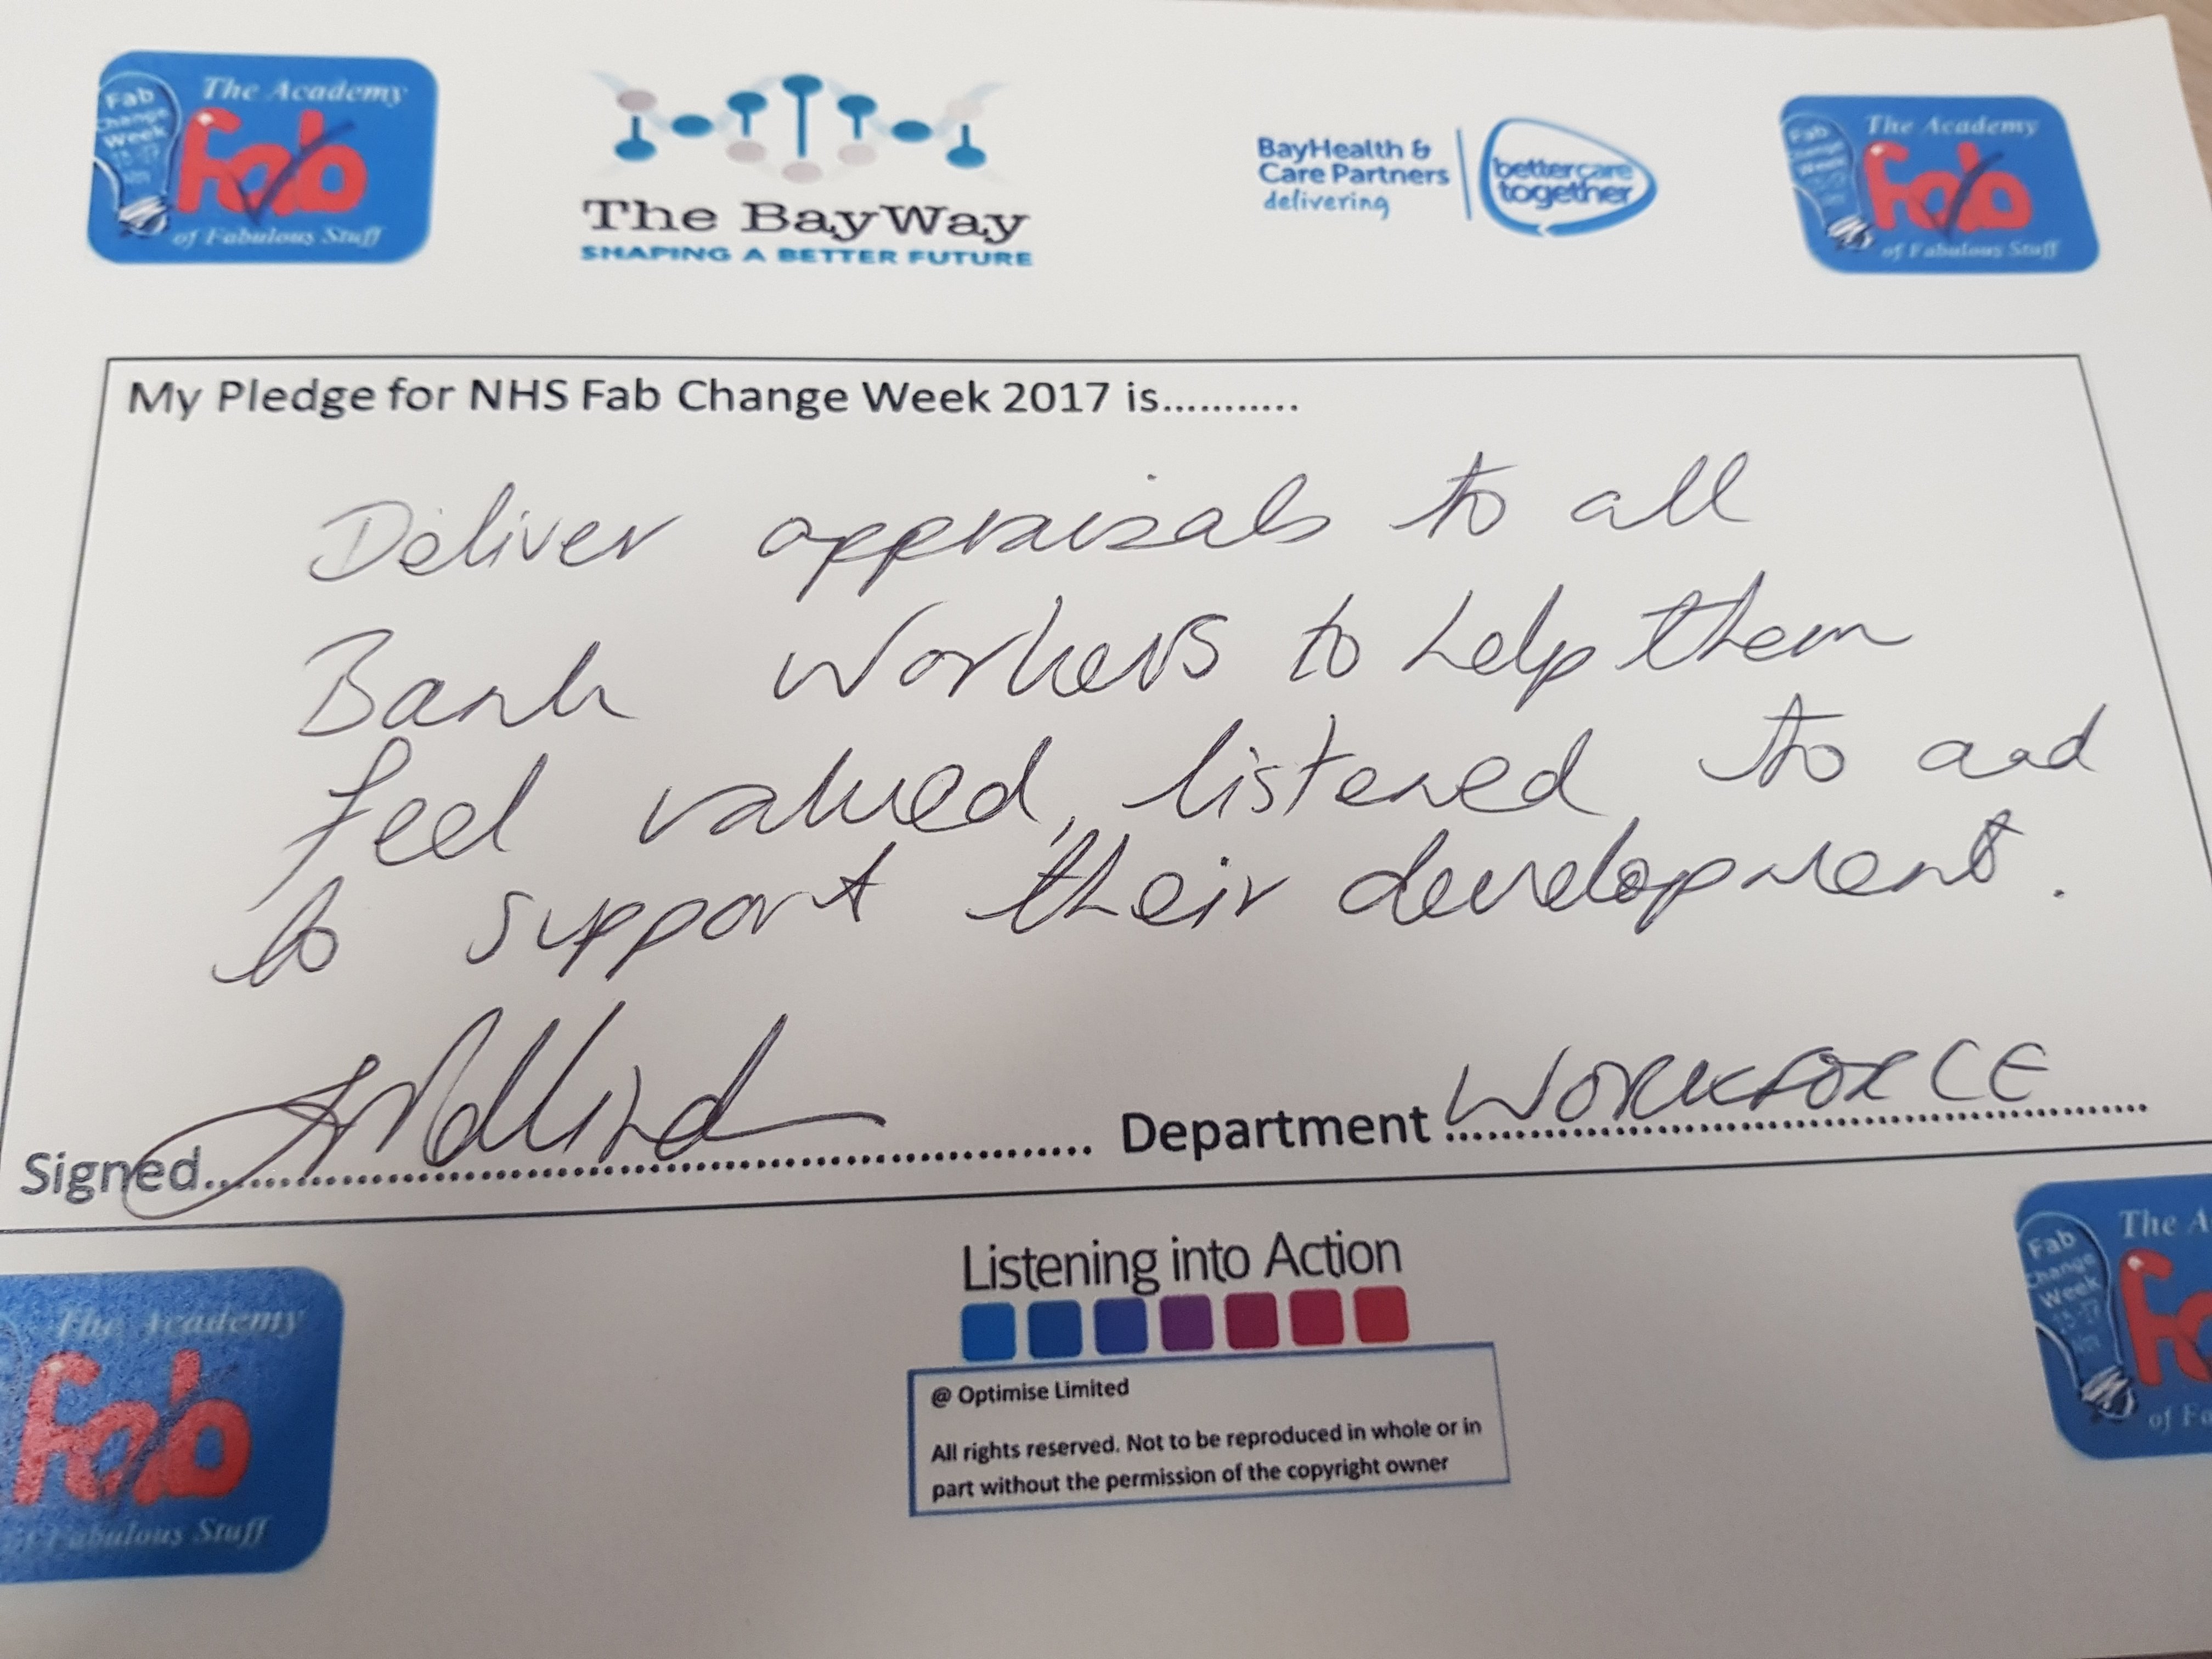 The Academy
Fab
Change
Week
Fab
of Fabulous Stuff
The BayWay
SHAPING A BETTER FUTURE
BayHealth &
Care Partners
delivering
better care
together
The Academy
Fab
Change
Week
Fab
of Fabulous Stuff
My Pledge for NHS Fab Change Week 2017 is...........
Deliver appraisals to all
Bank Workers to help them
feel valued, listened to and
to support their development.
Signed
Department WORKFORCE
Listening into Action
@ Optimise Limited
All rights reserved. Not to be reproduced in whole or in
part without the permission of the copyright owner
The Academy
Fab
of Fabulous Stuff
The A
Fab
Change
Week
Fa
of Fa